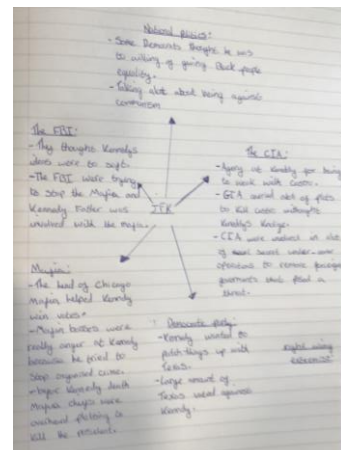 National politics:
- Some Democrats thought he was
to willing of giving Black people
equality.
- Talking alot about being against
communism
The FBI:
- They thought Kennedys
ideas were to soft.
- The FBI were trying
to stop the Mafia and
Kennedy Father was
involved with the mafia.
JFK
The CIA:
- Angry at Kennedy for trying
to work with Castro.
- CIA carried alot of plots
to kill Castro without
Kennedys
- CIA were involved in alot
of secret under-cover
operations to remove foreign
governments that posed a
threat.
Mafia:
- The head of Chicago
Mafia helped Kennedy
win votes.
- Mafia bosses were
really anger at Kennedy
because he tried to
stop organised crime.
- before Kennedy death
Mafia chiefs were
overheard plotting to
kill the president.
Democratic party:
- Kennedy wanted to
patch things up with
Texas.
- Large amount of
Texas voted against
Kennedy.
Right wing
extremist: